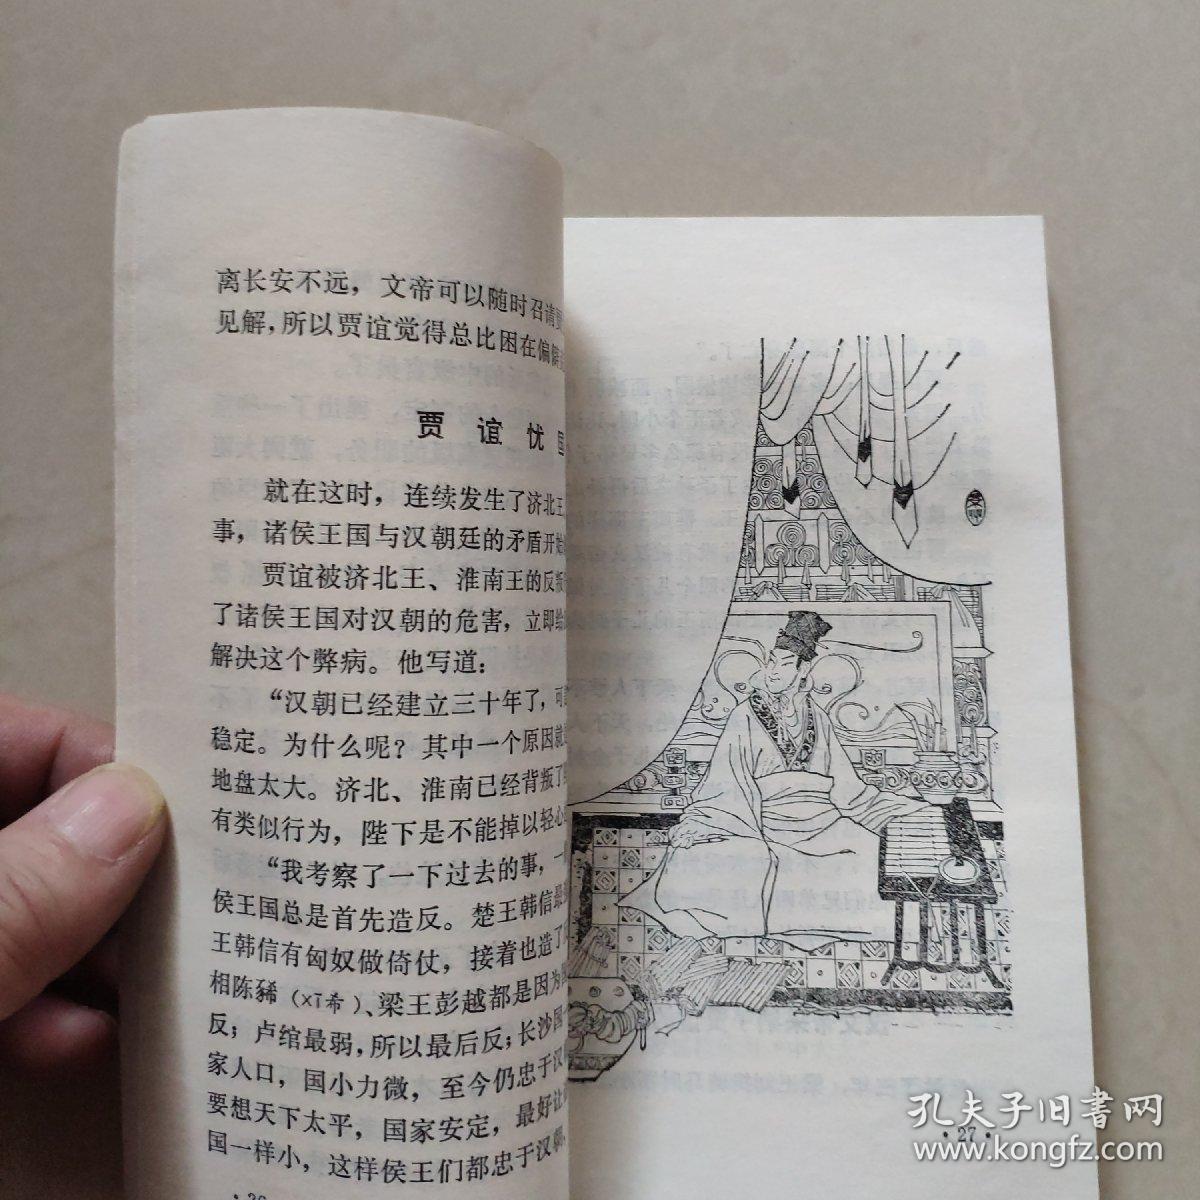 离长安不远，文帝可以随时召请
见解，所以贾谊觉得总比困在偏
贾谊忧国
就在这时，连续发生了济北王、
事，诸侯王国与汉朝廷的矛盾开始
贾谊被济北王、淮南王的反叛
了诸侯王国对汉朝的危害，立即给
解决这个弊病。他写道：
“汉朝已经建立三十年了，可
稳定。为什么呢？其中一个原因就
地盘太大。济北、淮南已经背叛了
有类似行为，陛下是不能掉以轻心
“我考察了一下过去的事，一
侯王国总是首先造反。楚王韩信最
王韩信有匈奴做倚仗，接着也造了
相陈豨（xī希）、梁王彭越都是因为
反；卢绾最弱，所以最后反；长沙国
家人口，国小力微，至今仍忠于汉
要想天下太平，国家安定，最好让
国一样小，这样侯王们都忠于汉朝，
·27·
孔夫子旧书网
www.kongfz.com